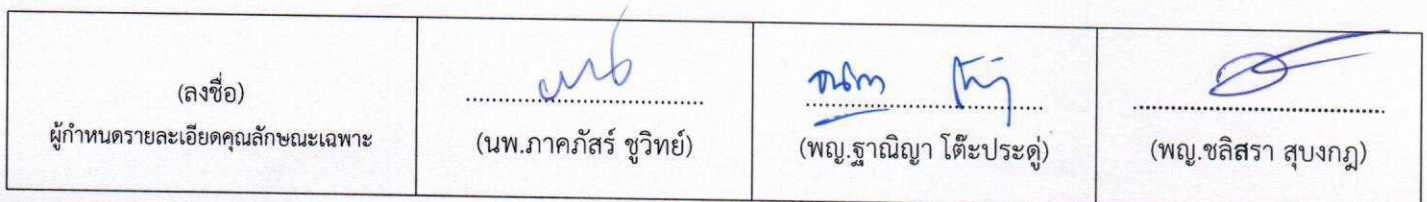 (ลงชื่อ)
ผู้กำหนดรายละเอียดคุณลักษณะเฉพาะ
(นพ.ภาคภัสร์ ชูวิทย์)
(พญ.ฐาณิญา โต๊ะประดู่)
(พญ.ชลิสรา สุบงกฎ)